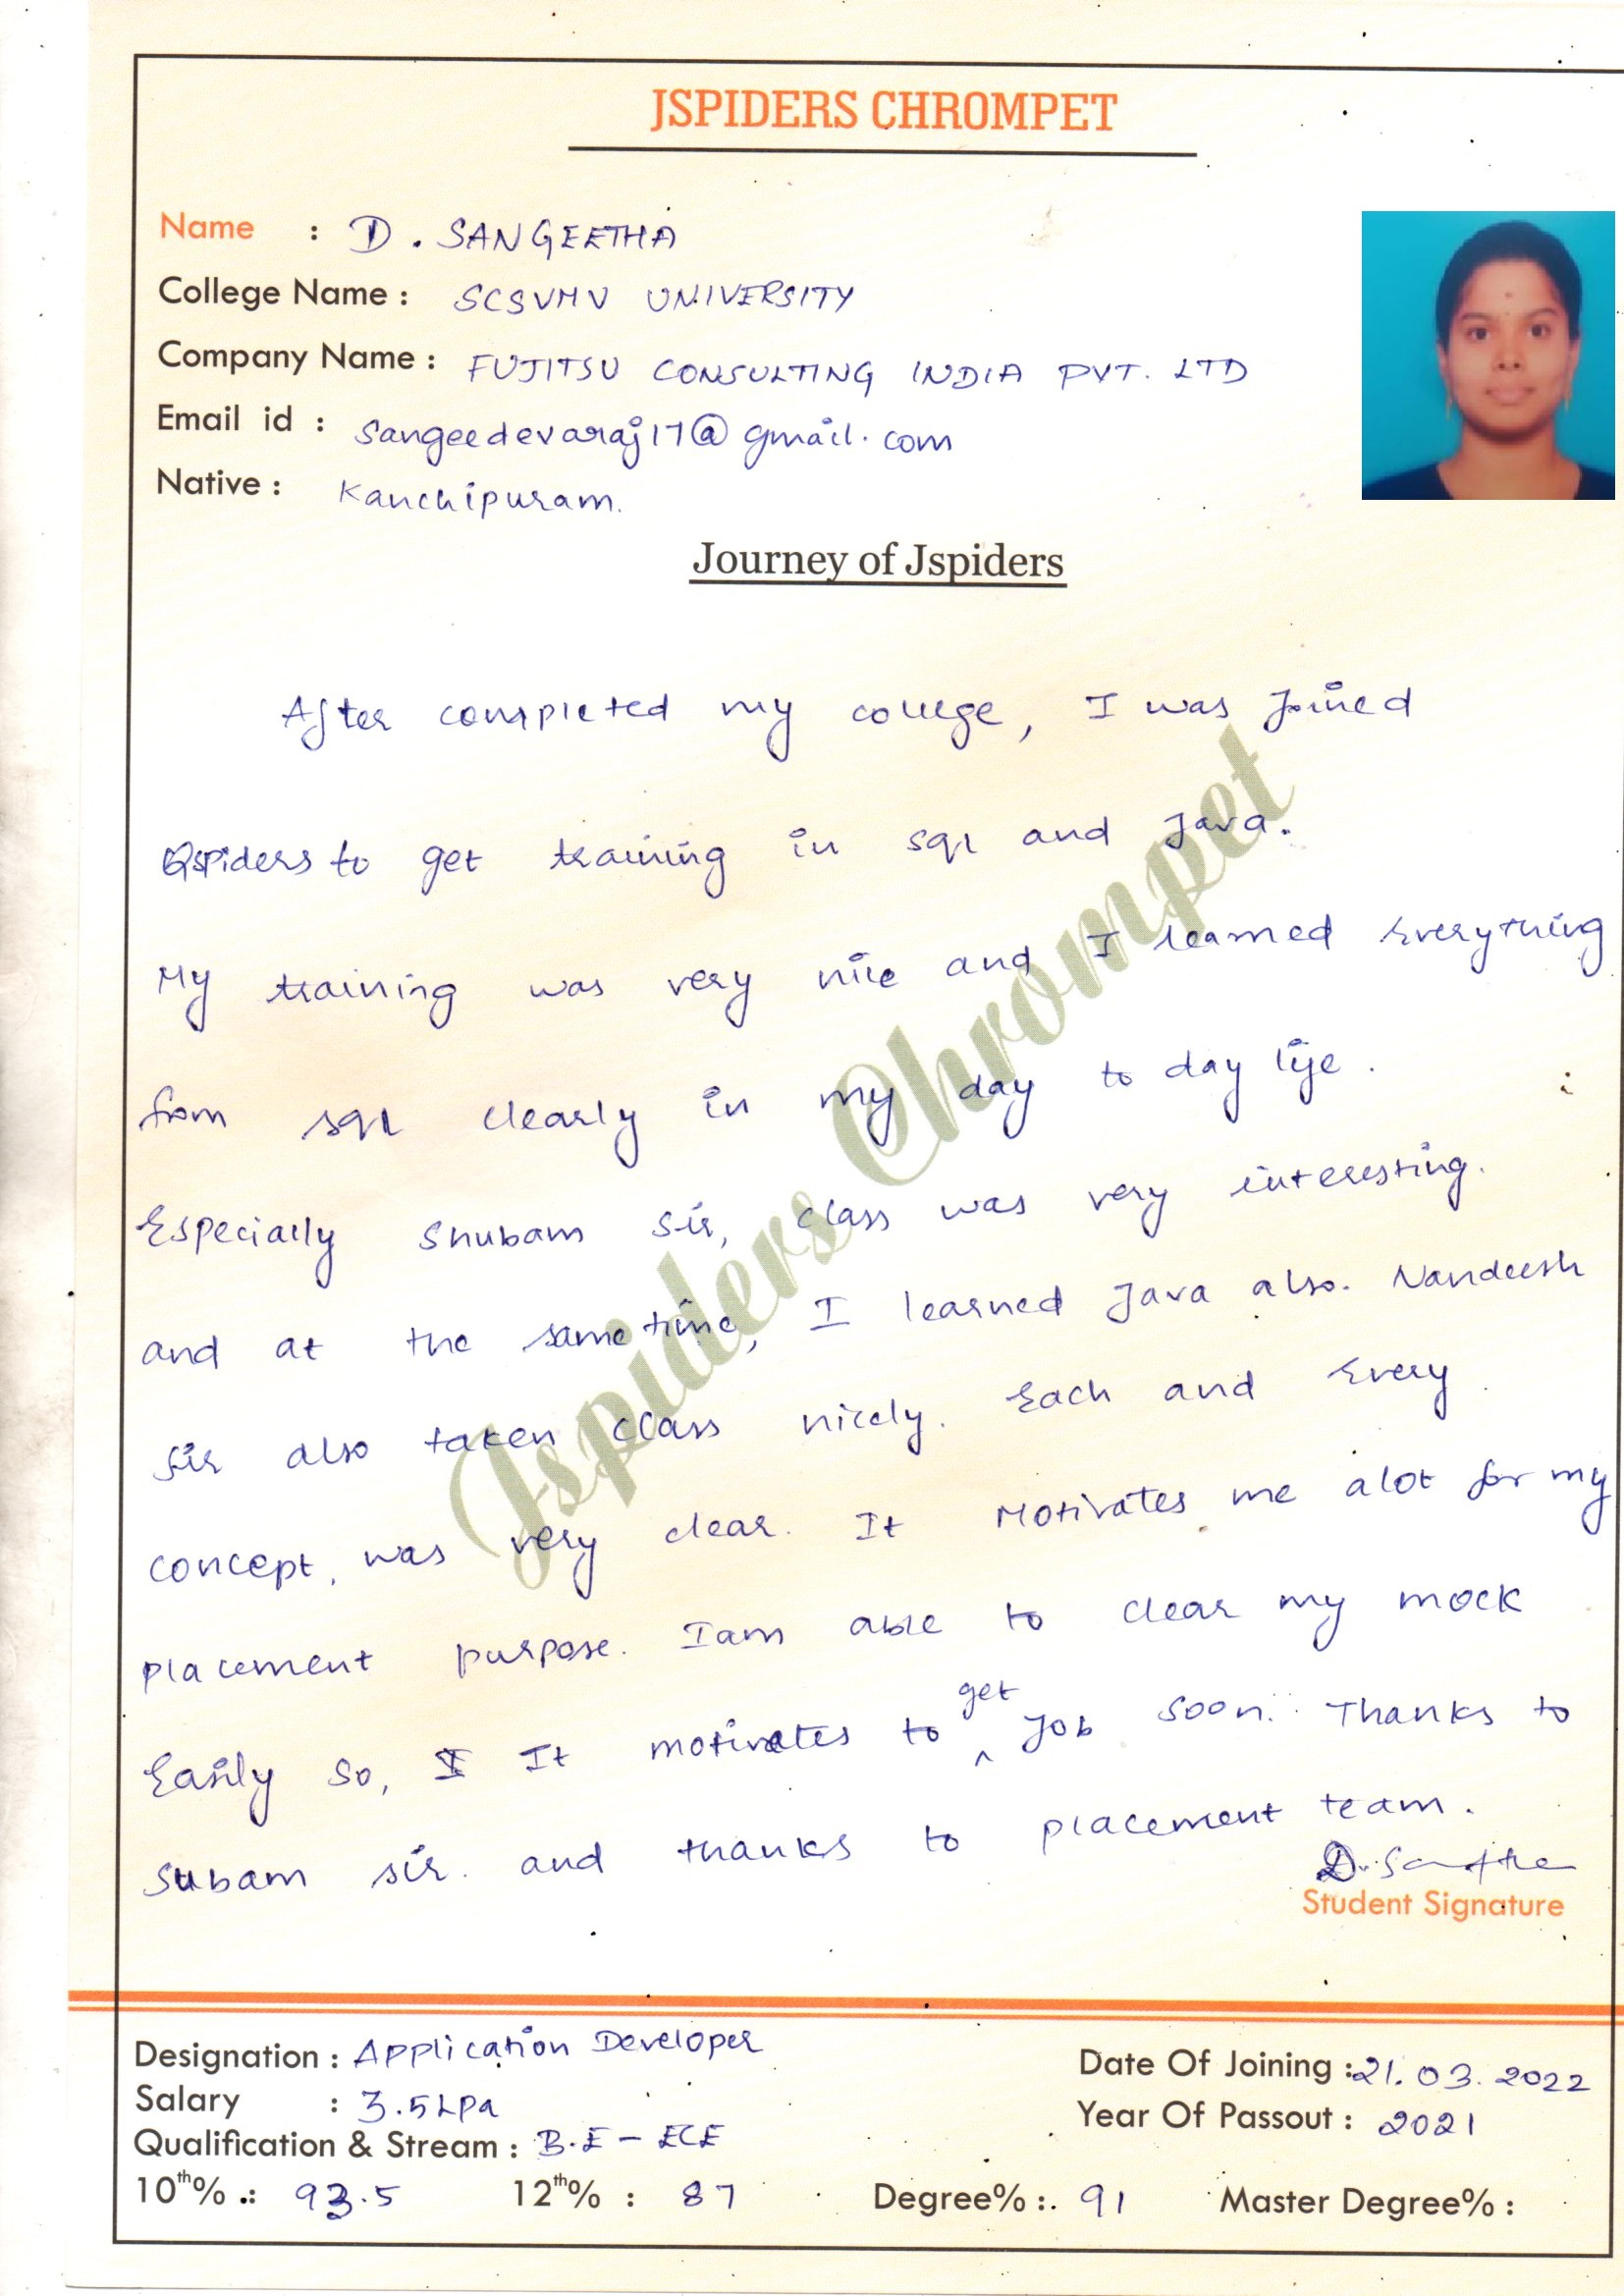 JSPIDERS CHROMPET
Name : D. SANGEETHA
College Name : SCSVMV UNIVERSITY
Company Name : FUJITSU CONSULTING INDIA PVT. LTD
Email id : sangeedevaraj17@gmail.com
Native : Kanchipuram.
Journey of Jspiders
After completed my college, I was Joined
Qspiders to get training in sql and Java.
My training was very nice and I learned Everything
from sql clearly in my day to day life.
Especially Shubam sir, class was very interesting.
and at the same time, I learned Java also. Nandeesh
sir also taken class nicely. Each and Every
concept, was very clear. It Motivates me alot for my
placement purpose. Iam able to clear my mock
Easily so, I It motivates to get Job soon. Thanks to
Subam sir. and thanks to placement team.
D. Sangeetha
Student Signature
Jspiders Chrompet
Designation : Application Developer
Date Of Joining : 21.03.2022
Salary : 3.5 Lpa
Year Of Passout : 2021
Qualification & Stream : B.E - ECE
10th% : 93.5 12th% : 87 Degree% : 91 Master Degree% :